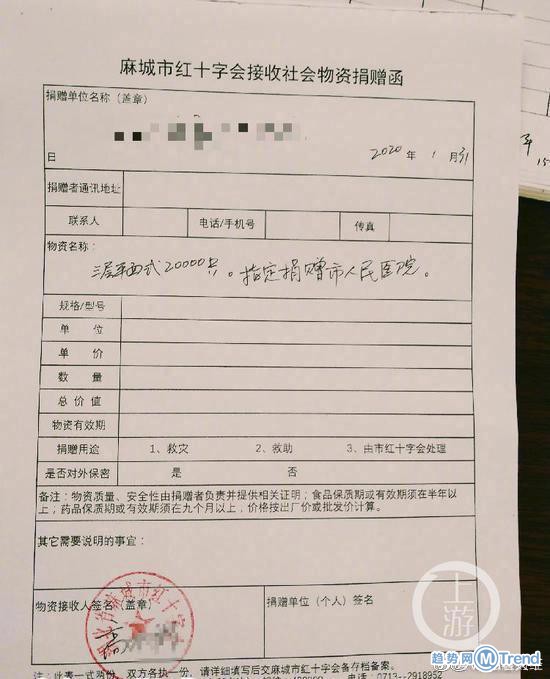 麻城市红十字会接收社会物资捐赠函
捐赠单位名称（盖章）
日 2020 年 1 月 31
捐赠者通讯地址
联系人 电话/手机号 传真
物资名称：
20000只。指定捐赠市人民医院。
规格/型号
单 位
单 价
数 量
总 价 值
物资有效期
捐赠用途 1、救灾 2、救助 3、由市红十字会处理
是否对外保密 是 否
备注：物资质量、安全性由捐赠者负责并提供相关证明；食品保质期或有效期须在半年以
上；药品保质期或有效期须在九个月以上，价格按出厂价或批发价计算。
其它需要说明的事宜：
物资接收人签名（盖章） 捐赠单位（个人）签名
省麻城市红十字
注：此表一式两份，双方各执一份，请详细填写后交麻城市红十字会备存档备案。
0713--2918952
年
15
上游
趋势网 M Trend